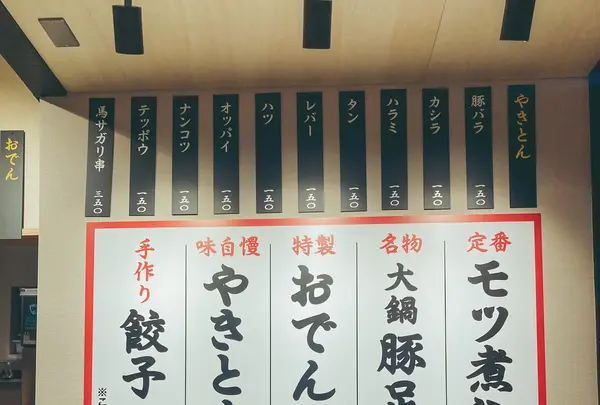 やきとん
豚バラ 一五〇
カシラ 一五〇
ハラミ 一五〇
タン 一五〇
レバー 一五〇
ハツ 一五〇
オッパイ 一五〇
ナンコツ 一五〇
テッポウ 一五〇
馬サガリ串 三五〇
おでん
定番
モツ煮
名物
大鍋豚足
特製
おでん
味自慢
やきとん
手作り
餃子